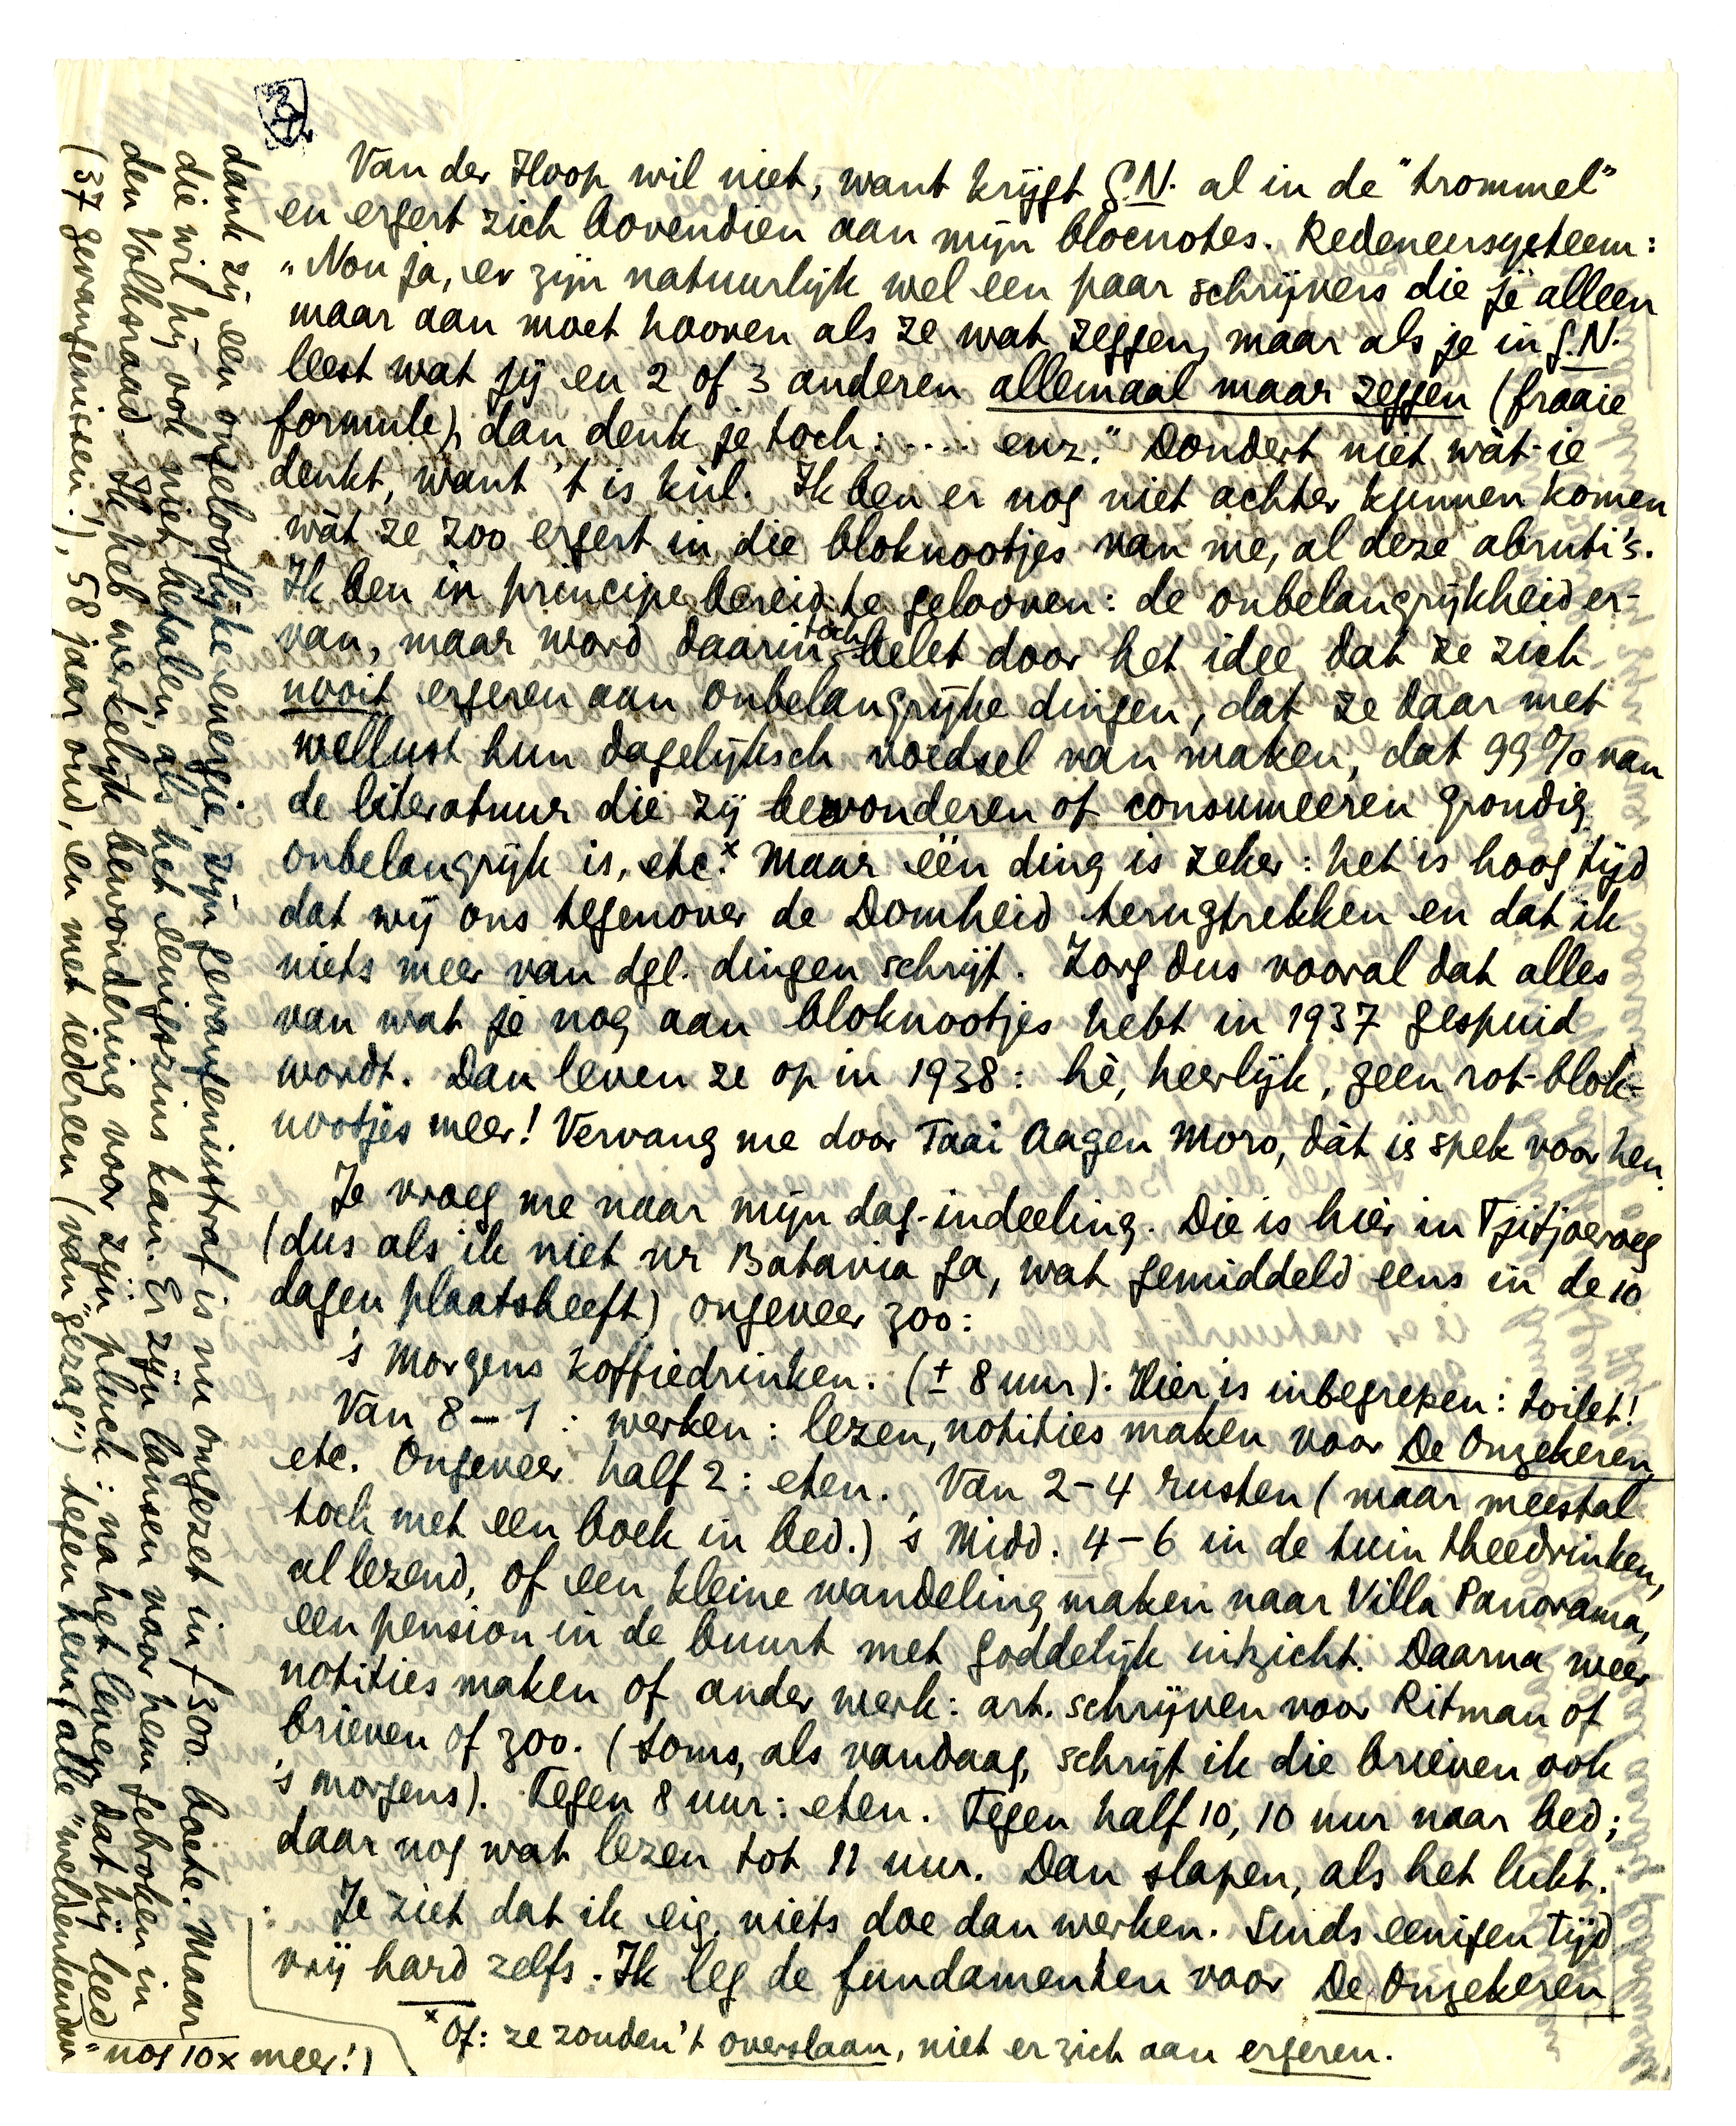 Van der Hoop wil niet, want krijgt G.N. al in de "trommel"
en ergert zich bovendien aan mijn blocnotes. Redeneersysteem:
"Nou ja, er zijn natuurlijk wel een paar schrijvers die je alleen
maar aan moet hooren als ze wat zeggen, maar als je in G.N.
leest wat jij en 2 of 3 anderen allemaal maar zeggen (fraaie
formule), dan denk je toch: .... enz." Dondert niet wàt-ie
denkt, want 't is kùl. Ik ben er nog niet achter kunnen komen
wàt ze zoo ergert in die bloknootjes van me, al deze abruti's.
Ik ben in principe bereid te gelooven: de onbelangrijkheid er-
van, maar word daarin toch belet door het idee dat ze zich
nooit ergeren aan onbelangrijke dingen, dat ze daar met
wellust hun dagelijksch voedsel van maken, dat 99% van
de literatuur die zij bewonderen of consumeeren grondig
onbelangrijk is, etc.x Maar één ding is zeker: het is hoog tijd
dat wij ons tegenover de Domheid terugtrekken en dat ik
niets meer van dgl. dingen schrijf. Zorg dus vooral dat alles
van wat je nog aan bloknootjes hebt in 1937 gespuid
wordt. Dan leven ze op in 1938: hè, heerlijk, geen rot-blok-
nootjes meer! Vervang me door Taai Aagen Moro, dàt is spek voor hen.
Je vroeg me naar mijn dag-indeeling. Die is hier in Tjitjoeroeg
(dus als ik niet nr Batavia ga, wat gemiddeld eens in de 10
dagen plaatsheeft) ongeveer zoo:
's Morgens koffiedrinken. (± 8 uur). Hier is inbegrepen: toilet!
Van 8-1: werken: lezen, notities maken voor De Onzekeren,
etc. Ongeveer half 2: eten. Van 2-4 rusten (maar meestal
toch met een boek in bed.) 's Midd. 4-6 in de tuin theedrinken,
al lezend, of een kleine wandeling maken naar Villa Panorama,
een pension in de buurt met goddelijk uitzicht. Daarna weer
notities maken of ander werk: art. schrijven voor Ritman of
brieven of zoo. (Soms, als vandaag, schrijf ik die brieven ook
's morgens). Tegen 8 uur: eten. Tegen half 10, 10 uur naar bed;
daar nog wat lezen tot 11 uur. Dan slapen, als het lukt.
Je ziet dat ik eig. niets doe dan werken. Sinds eenigen tijd
vrij hard zelfs. Ik leg de fundamenten voor De Onzekeren
x Of: ze zouden 't overslaan, niet er zich aan ergeren.
dank zij een ongelooflijke energie, zijn gevangenisstraf is nu omgezet in f 300. boete. Maar
die wil hij ook niet betalen, als het eenigszins kan. Er zijn lansen voor hem gebroken in
den Volksraad. Ik heb werkelijk bewondering voor zijn pluck: na het leven dat hij leed
(37 gevangenissen!), 58 jaar oud, en met iedereen (van "gezag") tegen hem (alle "weldenkenden"
nog 10x meer!)